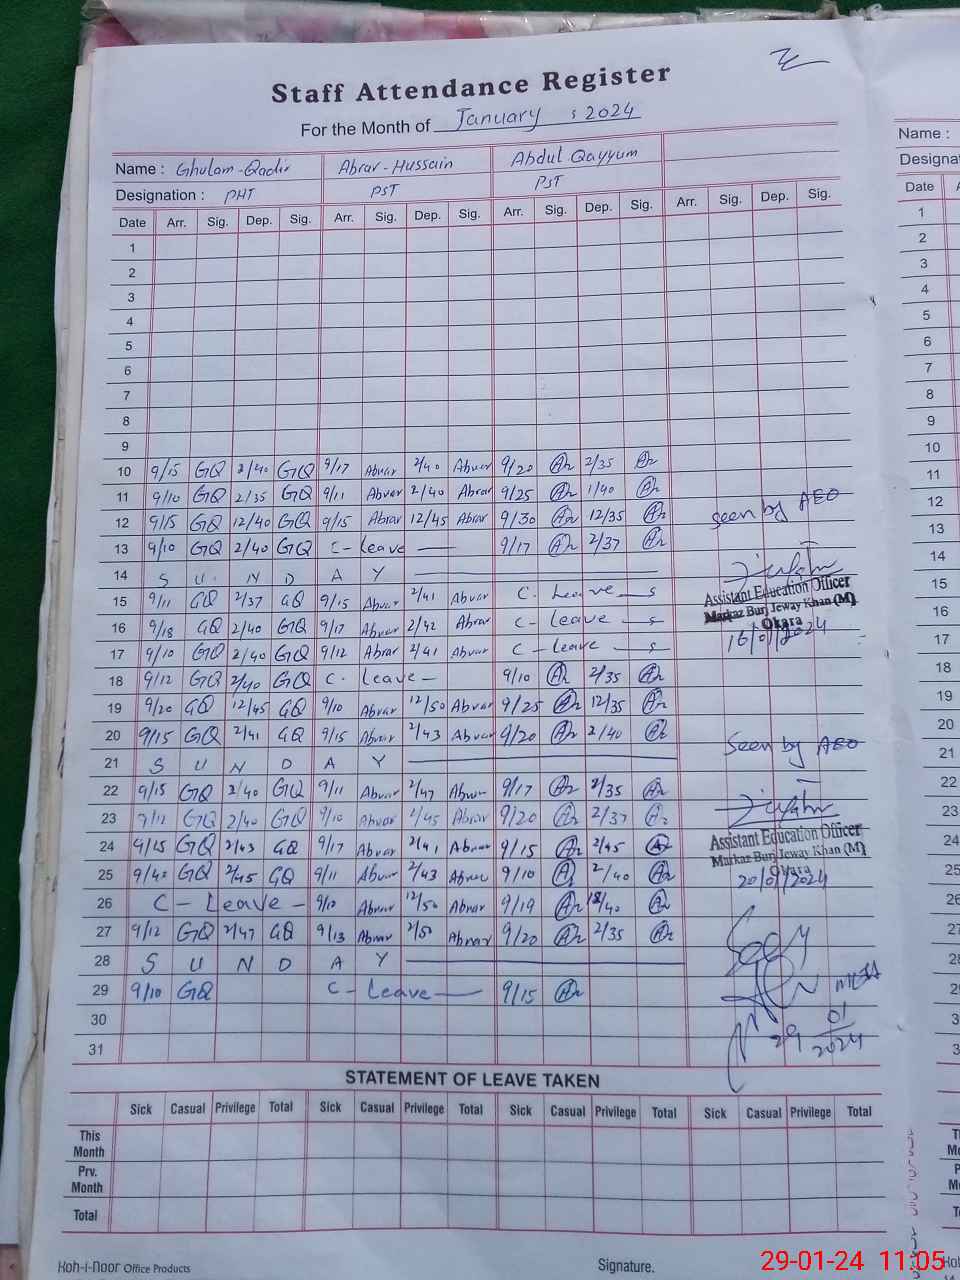 Staff Attendance Register
For the Month of January , 2024
Name : Ghulam-Qadir Abrar-Hussain Abdul Qayyum
Designation : PHT PST PST
Date Arr. Sig. Dep. Sig. Arr. Sig. Dep. Sig. Arr. Sig. Dep. Sig. Arr. Sig. Dep. Sig.
1
2
3
4
5
6
7
8
9
10 9/15 GQ 2/40 GQ 9/17 Abrar 2/40 Abrar 9/20 2/35
11 9/10 GQ 2/35 GQ 9/11 Abrar 2/40 Abrar 9/25 1/40
12 9/15 GQ 12/40 GQ 9/15 Abrar 12/45 Abrar 9/30 12/35 seen by AEO
13 9/10 GQ 2/40 GQ C-Leave 9/17 2/37
14 S U N D A Y
15 9/11 GQ 2/37 GQ 9/15 Abrar 2/41 Abrar C. Leave Assistant Education Officer
Markaz Burj Jeway Khan (M)
Okara
16 9/18 GQ 2/40 GQ 9/17 Abrar 2/42 Abrar C-Leave 16/01/2024
17 9/10 GQ 2/40 GQ 9/12 Abrar 2/41 Abrar C-leave
18 9/12 GQ 2/40 GQ C. Leave 9/10 2/35
19 9/20 GQ 12/45 GQ 9/10 Abrar 12/50 Abrar 9/25 12/35
20 9/15 GQ 2/41 GQ 9/15 Abrar 2/43 Abrar 9/20 2/40 Seen by AEO
21 S U N D A Y
22 9/15 GQ 2/40 GQ 9/11 Abrar 2/47 Abrar 9/17 2/35
23 GQ 2/40 GQ 9/10 Abrar Abrar 9/20 2/37
24 9/15 GQ 2/43 GQ 9/17 Abrar 2/41 Abrar 9/15 2/45 Assistant Education Officer
Markaz Burj Jeway Khan (M)
Okara
25 GQ 2/45 GQ 9/11 Abrar 2/43 Abrar 9/10 2/40 20/01/2024
26 C-Leave 9/10 Abrar 12/50 Abrar 9/19
27 9/12 GQ 2/47 GQ 9/13 Abrar 2/50 Abrar 9/20 2/35
28 S U N D A Y
29 9/10 GQ C-Leave 9/15
30 29 01
2024
31
STATEMENT OF LEAVE TAKEN
Sick Casual Privilege Total Sick Casual Privilege Total Sick Casual Privilege Total Sick Casual Privilege Total
This
Month
Prv.
Month
Total
Koh-i-Noor Office Products Signature.
Name :
Date
1
2
3
4
5
6
7
8
9
10
11
12
13
14
15
16
17
18
19
20
21
22
23
24
25
29-01-24 11:05